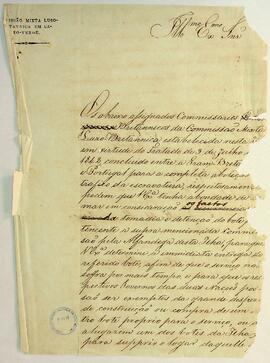 COMMISSÃO MIXTA LUSO-
BRITANNICA EM CA-
BO-VERDE.
Illmo. Exmo. Snr.
Os abaixo assignados Commissarios
Britannicos da Commissão Mixta
Luso Britannica, estabelecida nesta
em virtude do Tratado de 3 de Julho,
1842, concluido entre a Gram Bretª
e Portugal para a completa abolição
trafico da escravatura respeitosamente
pedem que Vª Exª tenha a bondade de
mar em consideração os factos
da tomadia e detenção do bote,
tencente á supra mencionada Commis
são pela Alfandega desta Ilha, para que
Vª Exª determine a immediata entrega do
referido bote, afim de que o serviço não
soffra por mais tempo, e para que os res-
pectivos Governos das duas Nações pos-
são ser exemptos da grande despeza
de construcção ou compra de um
tro bote proprio para o serviço, ou a
alugarem um dos botes da Ilha
para supprir o logar daquelle